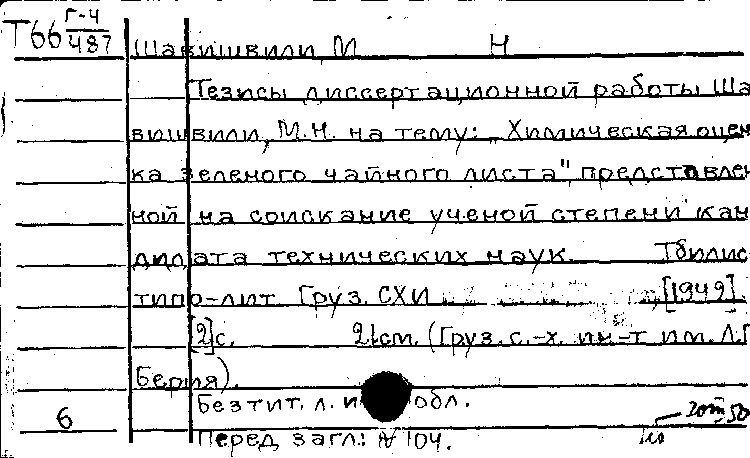 Т66 Г-4/487
Шавишвили, М Н
Тезисы диссертационной работы Ша
вишвили, М.Н. на тему: „Химическая оцен
ка зеленого чайного листа" представлен
ной на соискание ученой степени кан
дидата технических наук. Тбилис
типо-лит. Груз. СХИ, [1949].
[2]с. 21см. (Груз. с.-х. ин-т им. Л.П
Берия).
Без тит. л. и обл.
6
Перед загл: № 104.